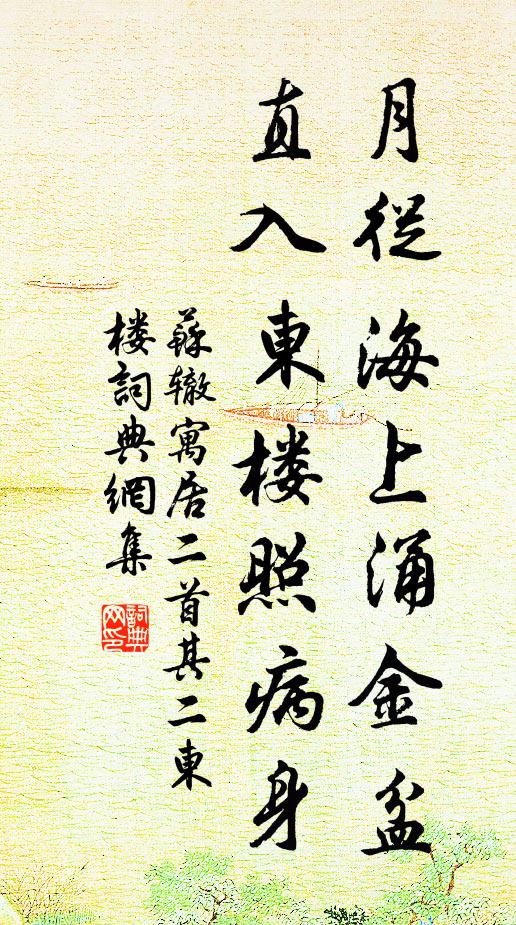 月從海上涌金盆
直入東楼照病身
蘇辙寓居二首其二東
楼詞典網集
詞典
网印